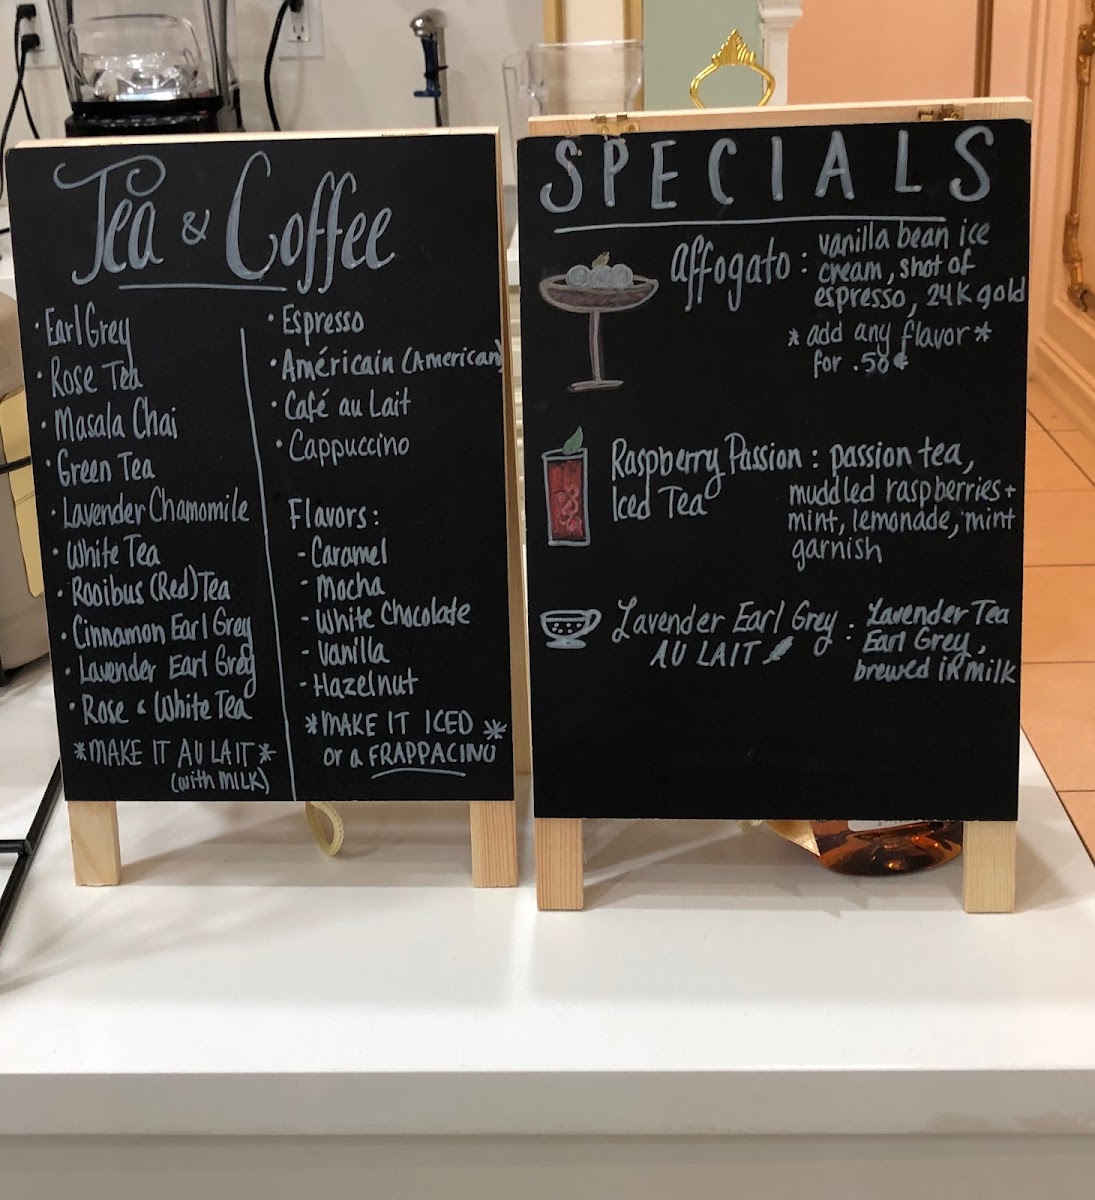 Tea & Coffee
• Earl Grey
• Rose Tea
• Masala Chai
• Green Tea
• Lavender Chamomile
• White Tea
• Rooibus (Red) Tea
• Cinnamon Earl Grey
• Lavender Earl Grey
• Rose & White Tea
*MAKE IT AU LAIT*
(with MILK)
• Espresso
• Américain (American)
• Café au Lait
• Cappuccino
Flavors:
- Caramel
- Mocha
- White Chocolate
- Vanilla
- Hazelnut
*MAKE IT ICED *
or a FRAPPACINO
SPECIALS
affogato : vanilla bean ice
cream, shot of
espresso, 24K gold
*add any flavor*
for .50¢
Raspberry Passion : passion tea,
Iced Tea muddled raspberries +
mint, lemonade, mint
garnish
Lavender Earl Grey : Lavender Tea
AU LAIT Earl Grey,
brewed in milk